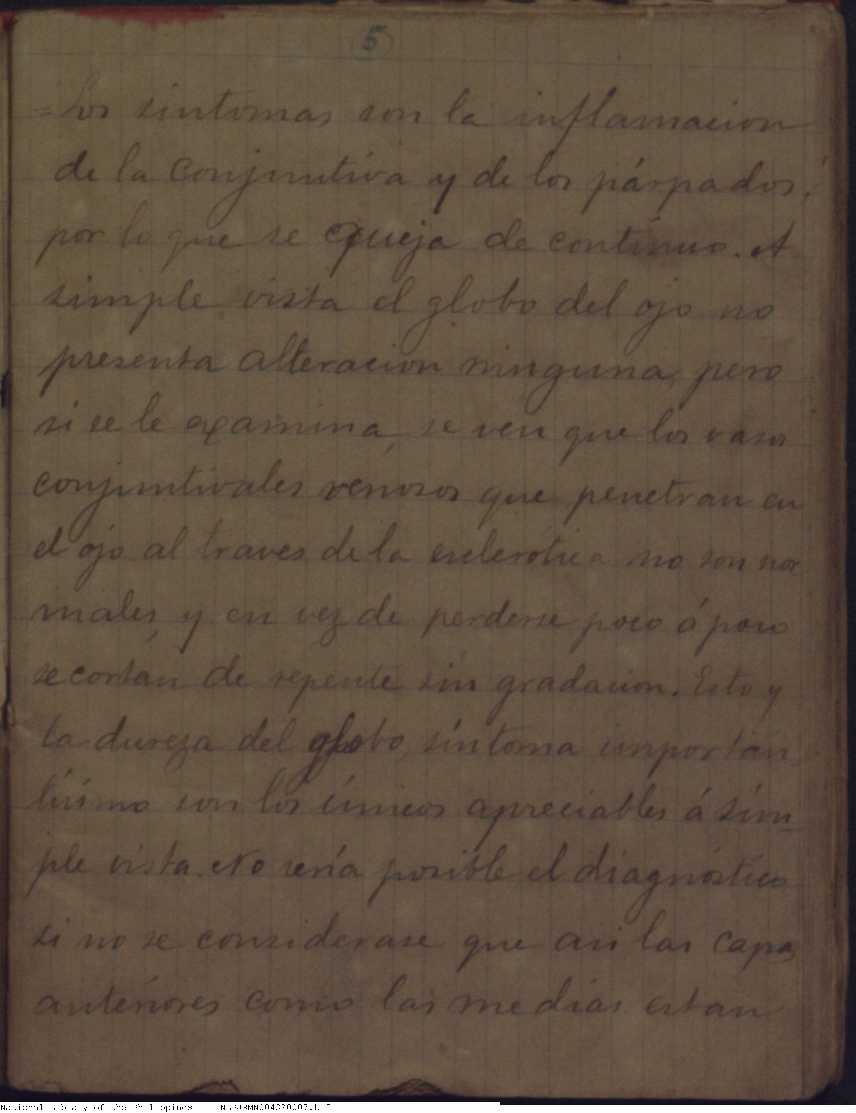 5
= Los sintomas son la inflamacion
de la conjuntiva y de los párpados,
por lo que se queja de contínuo. A
simple vista el globo del ojo no
presenta alteracion ninguna, pero
si se le examina, se ven que los vasos
conjuntivales venosos que penetran en
el ojo al traves de la esclerótica no son nor
males, y en vez de perderse poco á poco
se cortan de repente sin gradacion. Esto y
la dureza del globo, síntoma importan
tísimo son los únicos apreciables á sím-
ple vista. No sería posible el diagnóstico
si no se considerase que asi las capas
anteriores como las medias estan
National Library of the Philippines